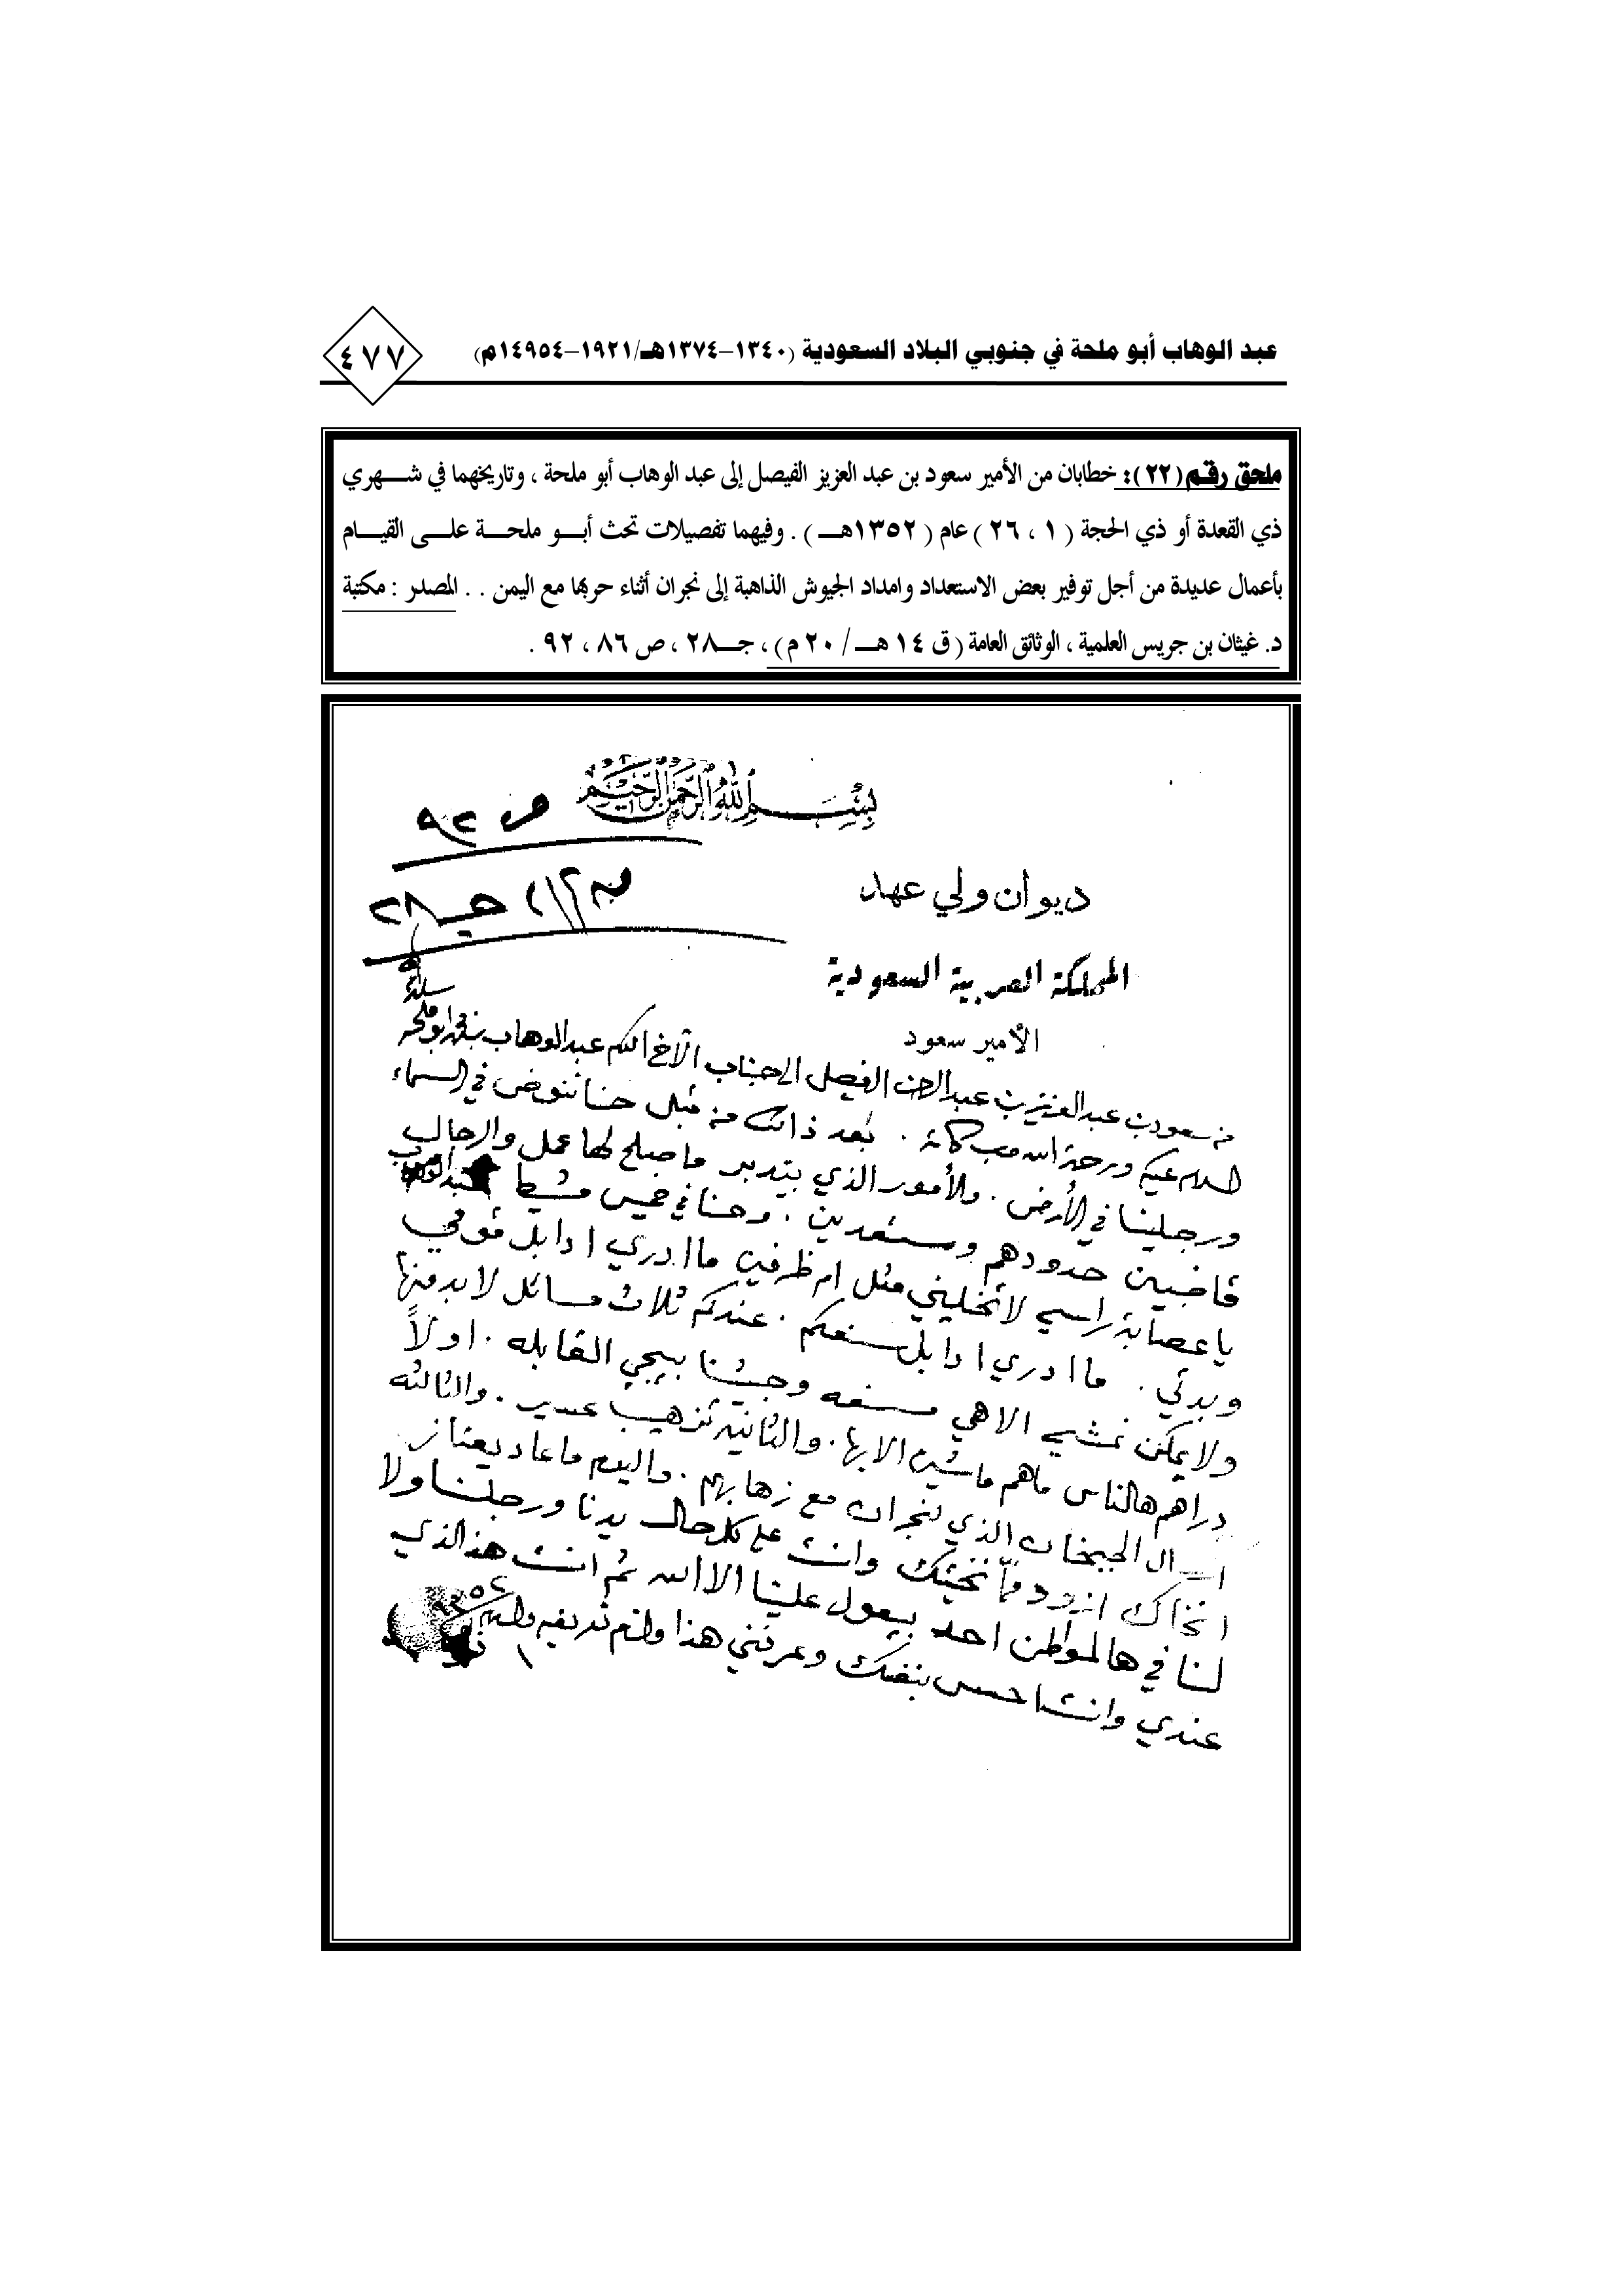 عبد الوهاب أبو ملحة في جنوبي البلاد السعودية (١٣٤٠-١٣٧٤هـ/١٩٢١-١٤٩٥٤م)
٤٧٧
ملحق رقم (٢٢): خطابان من الأمير سعود بن عبد العزيز الفيصل إلى عبد الوهاب أبو ملحة ، وتاريخهما في شهري
ذي القعدة أو ذي الحجة ( ١ ، ٢٦ ) عام ( ١٣٥٢هـ ) . وفيهما تفصيلات تحث أبو ملحة على القيام
بأعمال عديدة من أجل توفير بعض الاستعداد وامداد الجيوش الذاهبة إلى نجران أثناء حربها مع اليمن . . المصدر : مكتبة
د. غيثان بن جريس العلمية ، الوثائق العامة ( ق ١٤ هـ / ٢٠ م ) ، جـ٢٨ ، ص ٨٦ ، ٩٢ .
بسم الله الرحمن الرحيم
ص ٩٢
ديوان ولي عهد
جـ ٢٨
المملكة العربية السعودية
الأمير سعود
من سعود بن عبد العزيز بن عبد الرحمن الفيصل الى جناب الأخ المكرم عبد الوهاب بن ابو ملحه سلمه
السلام عليكم ورحمة الله وبركاته . بعد ذلك من قبل حنا ننوض في السماء
ورجلينا في الأرض . والأمور الذي يتدبر ما صلح لها عمل والرجال
قاضبين حدودهم ومستعدين . وحنا في خميس مشيط عبد الوهاب
يا عصابة راسي لا تخليني مثل ام ظرفين ما ادري ادابل فوقي
وبدني . ما ادري ادابل سنعكم . عندكم ثلاث مسائل لا بد منها
ولا يمكن نمشي الا هي مسنعه وجيشنا بيجي القابله . اولاً
دراهم هالناس ماهم ماشين الا بها . والثانية تزهيب عسير . والثالثه
ارسال الجبخان الذي لنجران مع زهابهم . واليوم ما عاد يعتاز
انخاك ازود مما نخيتك وانت على كل حال يدنا ورجلنا ولا
لنا في هالمواطن احد بيعول علينا الا الله ثم انت هذ الذي
عندي وانت احسن بنفسك وعرفني هذا ولزم تعريفه والسلام
١٣٥٢
١